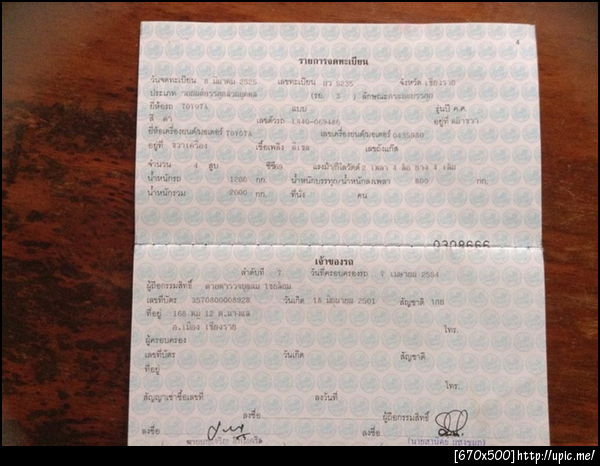 4
รายการจดทะเบียน
วันจดทะเบียน 8 มีนาคม 2525 เลขทะเบียน 5235 จังหวัด เชียงราย
ประเภท รถยนต์บรรทุกส่วนบุคคล (รย. 3 ) ลักษณะ กระบะบรรทุก
ยี่ห้อรถ TOYOTA แบบ รุ่นปี ค.ศ.
สี ดำ เลขตัวรถ LN40-069486 อยู่ที่
ยี่ห้อเครื่องยนต์/มอเตอร์ TOYOTA เลขเครื่องยนต์/มอเตอร์ 0435980
อยู่ที่ ขวาเครื่อง เชื้อเพลิง ดีเซล เลขถังแก๊ส
จำนวน 4 สูบ ซีซี 2 เพลา 4 ล้อ ยาง 4 เส้น
น้ำหนักรถ 1200 กก. น้ำหนักบรรทุก/น้ำหนักลงเพลา 800 กก.
น้ำหนักรวม 2000 กก. ที่นั่ง คน
0308666
เจ้าของรถ
ลำดับที่ 7 วันที่ครอบครองรถ 7 เมษายน 2554
ผู้ถือกรรมสิทธิ์
เลขที่บัตร 3570800008928 วันเกิด 18 มิถุนายน 2501 สัญชาติ ไทย
ที่อยู่ 168 หมู่ 12 ต.นางแล
อ.เมือง เชียงราย โทร.
ผู้ครอบครอง
เลขที่บัตร วันเกิด สัญชาติ
ที่อยู่
โทร.
สัญญาเช่าซื้อเลขที่ ลงวันที่
ลงชื่อ ผู้ถือกรรมสิทธิ์
ลงชื่อ ลงชื่อ
[670x500]http://upic.me/